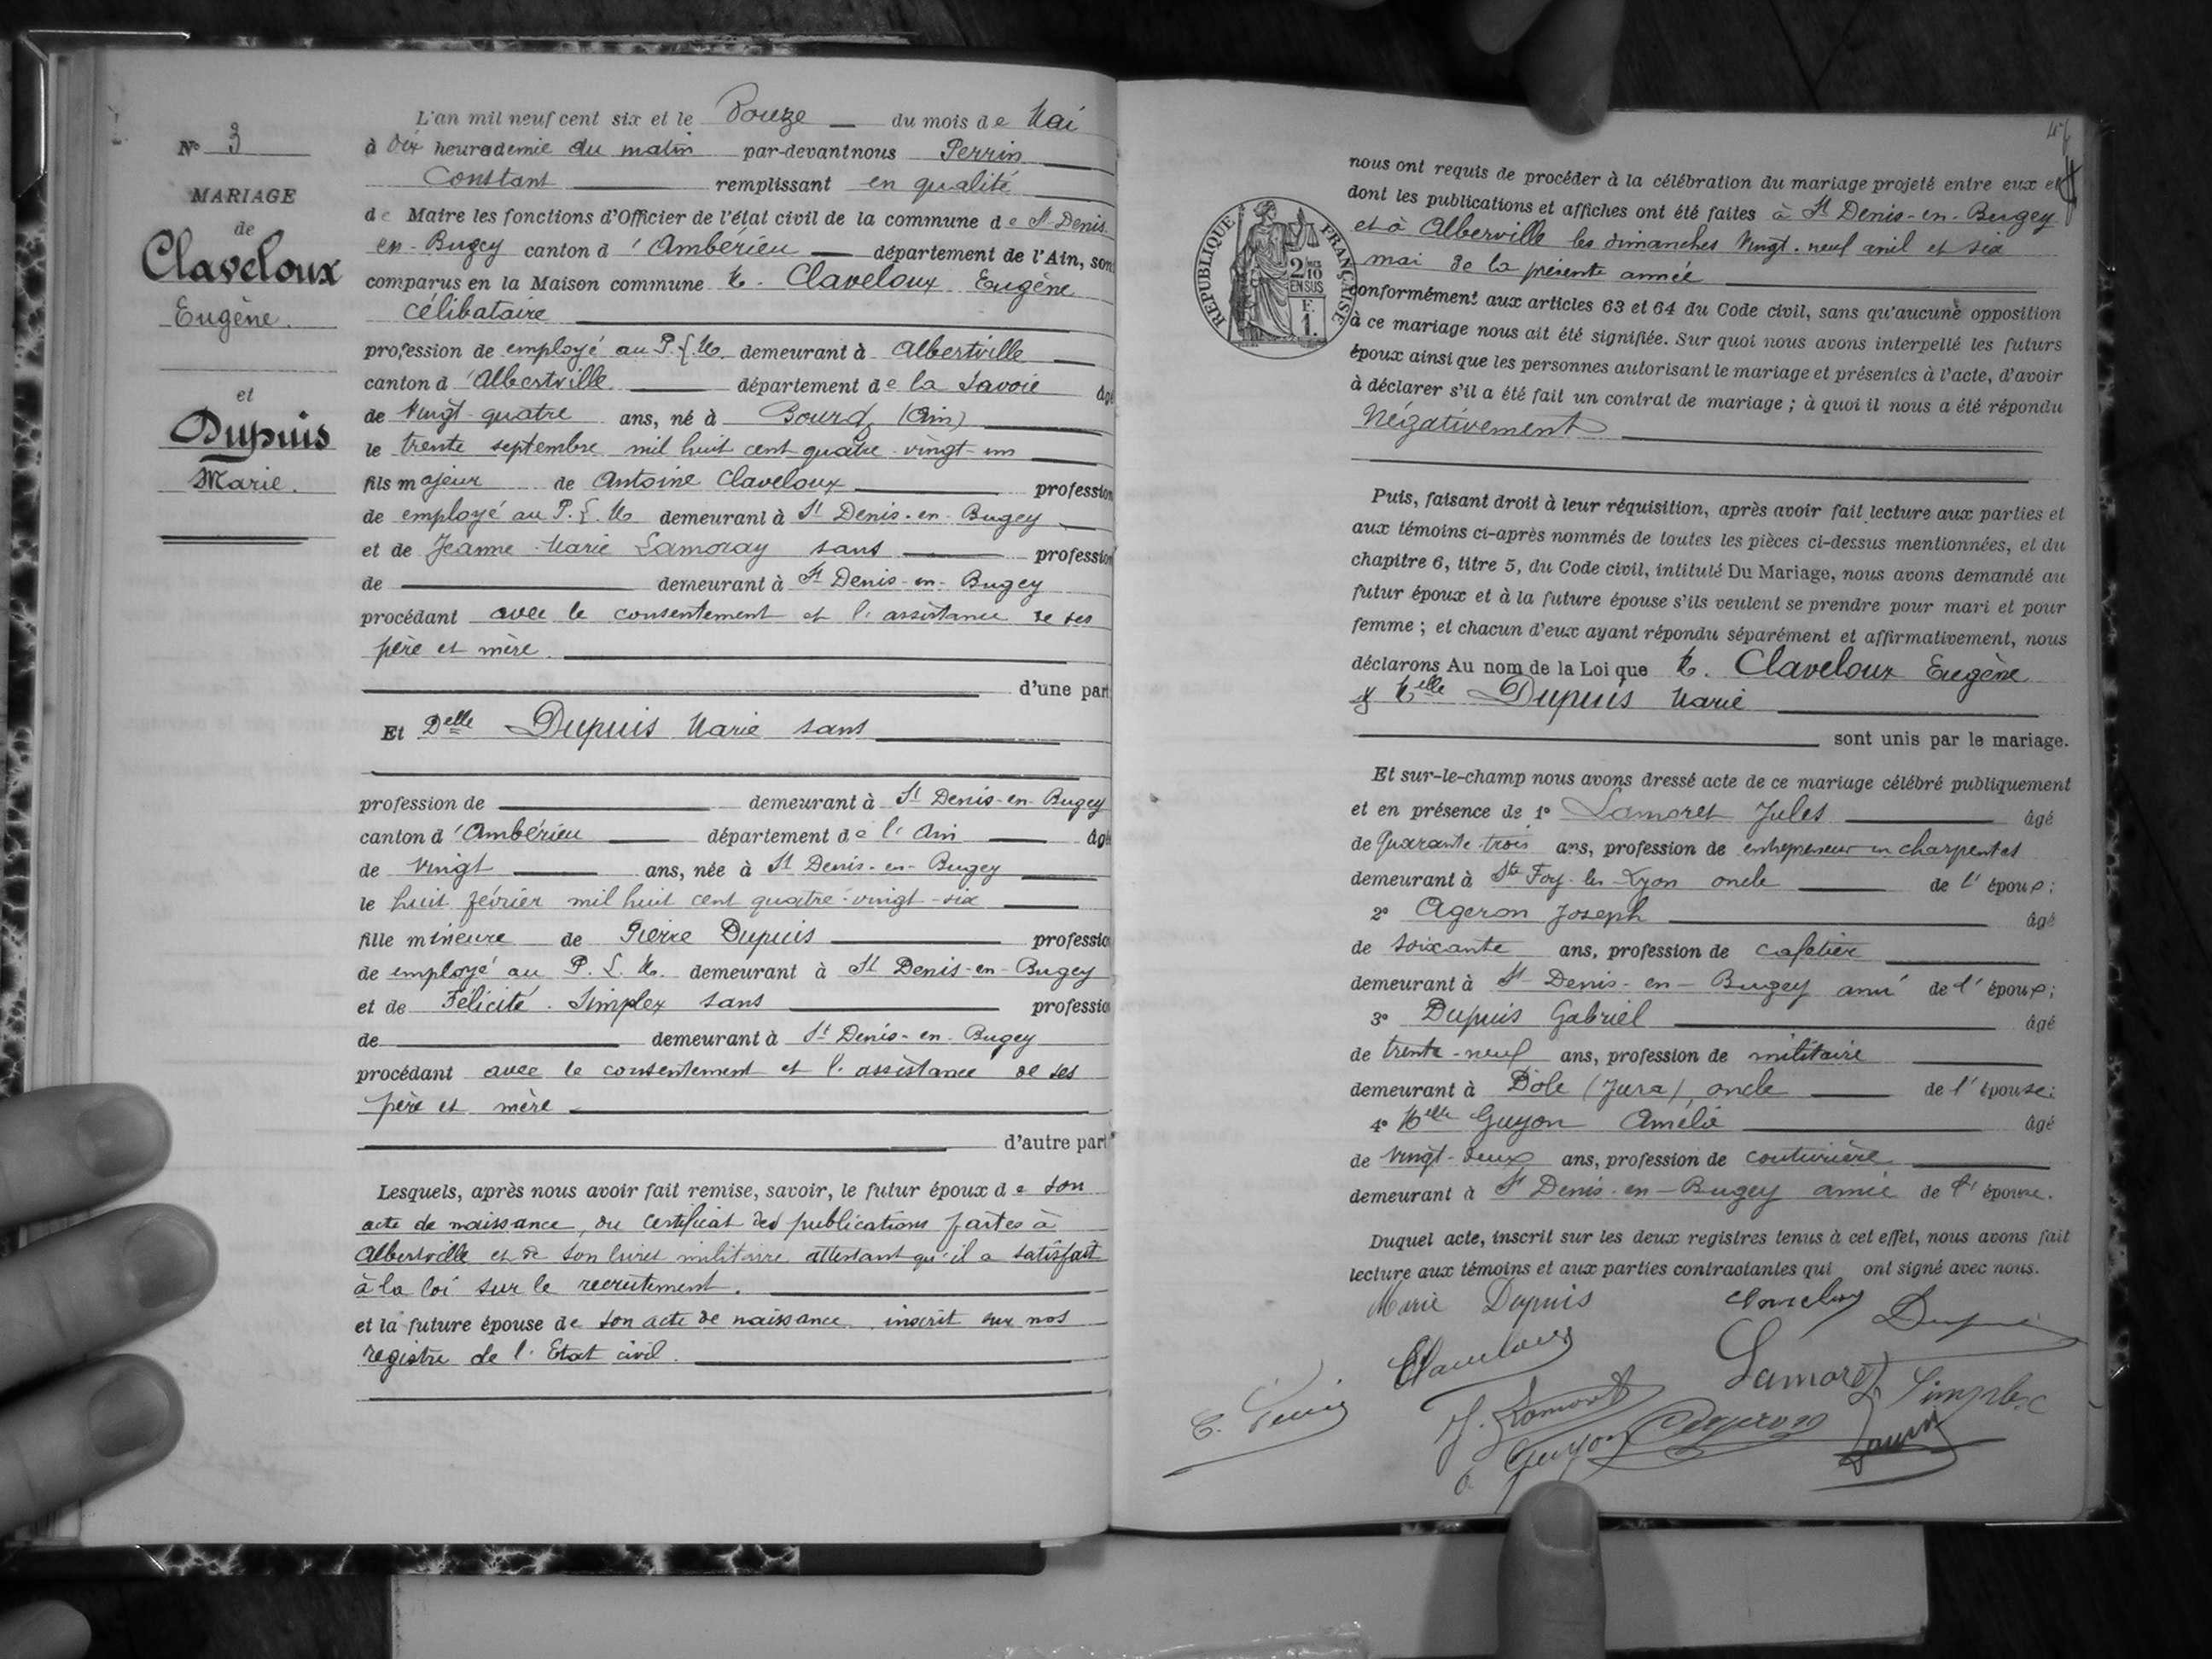 N° 3
MARIAGE
de
Claveloux
Eugène.
et
Dupuis
Marie.
L'an mil neuf cent six et le Douze du mois de Mai
à dix heure demie du matin par-devant nous Perrin
Constant remplissant en qualité
de Maire les fonctions d'Officier de l'état civil de la commune de St Denis
en-Bugey canton d'Ambérieu département de l'Ain, sont
comparus en la Maison commune M. Claveloux Eugène
célibataire
profession de employé au P.L.M. demeurant à Albertville
canton d'Albertville département de la Savoie âgé
de Vingt-quatre ans, né à Bourg (Ain)
le trente septembre mil huit cent quatre-vingt-un
fils majeur de Antoine Claveloux profession
de employé au P.L.M demeurant à St Denis-en-Bugey
et de Jeanne-Marie Lamoray sans profession
de demeurant à St Denis-en-Bugey
procédant avec le consentement et l'assistance de ses
père et mère.
d'une part
Et Delle Dupuis Marie sans
profession de demeurant à St Denis-en-Bugey
canton d'Ambérieu département de l'Ain âgé
de vingt ans, née à St Denis-en-Bugey
le huit février mil huit cent quatre-vingt-six
fille mineure de Pierre Dupuis profession
de employé au P.L.M. demeurant à St Denis-en-Bugey
et de Félicité Simplex sans profession
de demeurant à St Denis-en-Bugey
procédant avec le consentement et l'assistance de ses
père et mère
d'autre part
Lesquels, après nous avoir fait remise, savoir, le futur époux de son
acte de naissance, du certificat des publications faites à
Albertville et de son livret militaire attestant qu'il a satisfait
à la loi sur le recrutement.
et la future épouse de son acte de naissance inscrit sur nos
registre de l'Etat civil.
RÉPUBLIQUE FRANÇAISE
2/10
EN SUS
F.
1.
nous ont requis de procéder à la célébration du mariage projeté entre eux et
dont les publications et affiches ont été faites à St Denis-en-Bugey
et à Alberville les dimanches Vingt-neuf avril et six
mai de la présente année
conformément aux articles 63 et 64 du Code civil, sans qu'aucune opposition
à ce mariage nous ait été signifiée. Sur quoi nous avons interpellé les futurs
époux ainsi que les personnes autorisant le mariage et présents à l'acte, d'avoir
à déclarer s'il a été fait un contrat de mariage ; à quoi il nous a été répondu
Négativement
Puis, faisant droit à leur réquisition, après avoir fait lecture aux parties et
aux témoins ci-après nommés de toutes les pièces ci-dessus mentionnées, et du
chapitre 6, titre 5, du Code civil, intitulé Du Mariage, nous avons demandé au
futur époux et à la future épouse s'ils veulent se prendre pour mari et pour
femme ; et chacun d'eux ayant répondu séparément et affirmativement, nous
déclarons Au nom de la Loi que M. Claveloux Eugène
& Melle Dupuis Marie
sont unis par le mariage.
Et sur-le-champ nous avons dressé acte de ce mariage célébré publiquement
et en présence de 1° Lamoret Jules âgé
de Quarante-trois ans, profession de entrepreneur en charpentes
demeurant à Ste Foy-les-Lyon oncle de l'époux;
2° Ageron Joseph âgé
de soixante ans, profession de cafetier
demeurant à St Denis-en-Bugey ami de l'époux;
3° Dupuis Gabriel âgé
de trente-neuf ans, profession de militaire
demeurant à Dole (Jura), oncle de l'épouse;
4° Melle Guyon Amélie âgé
de vingt-deux ans, profession de couturière
demeurant à St Denis-en-Bugey amie de l'épouse.
Duquel acte, inscrit sur les deux registres tenus à cet effet, nous avons fait
lecture aux témoins et aux parties contractantes qui ont signé avec nous.
Marie Dupuis
Claveloux
Dupuis
Lamoret
Simplex
J. Lamoret
Guyon
Ageron